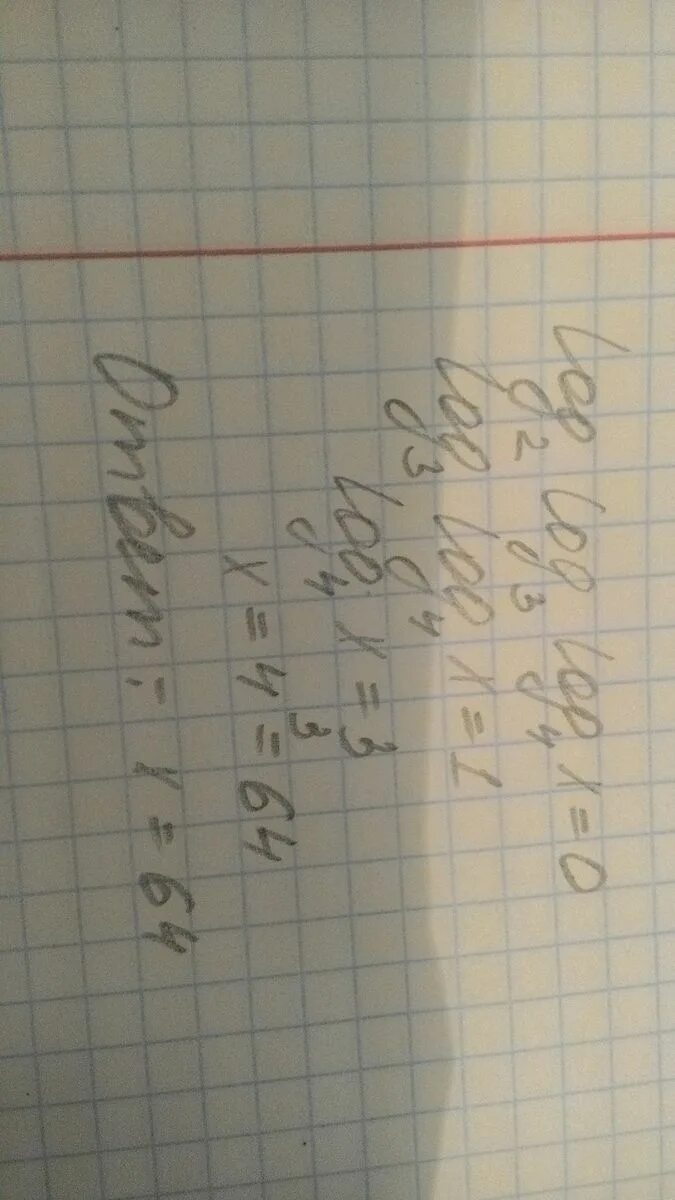 log₂ log₃ log₄ x = 0
log₃ log₄ x = 1
log₄ x = 3
x = 4³ = 64
Ответ: x = 64